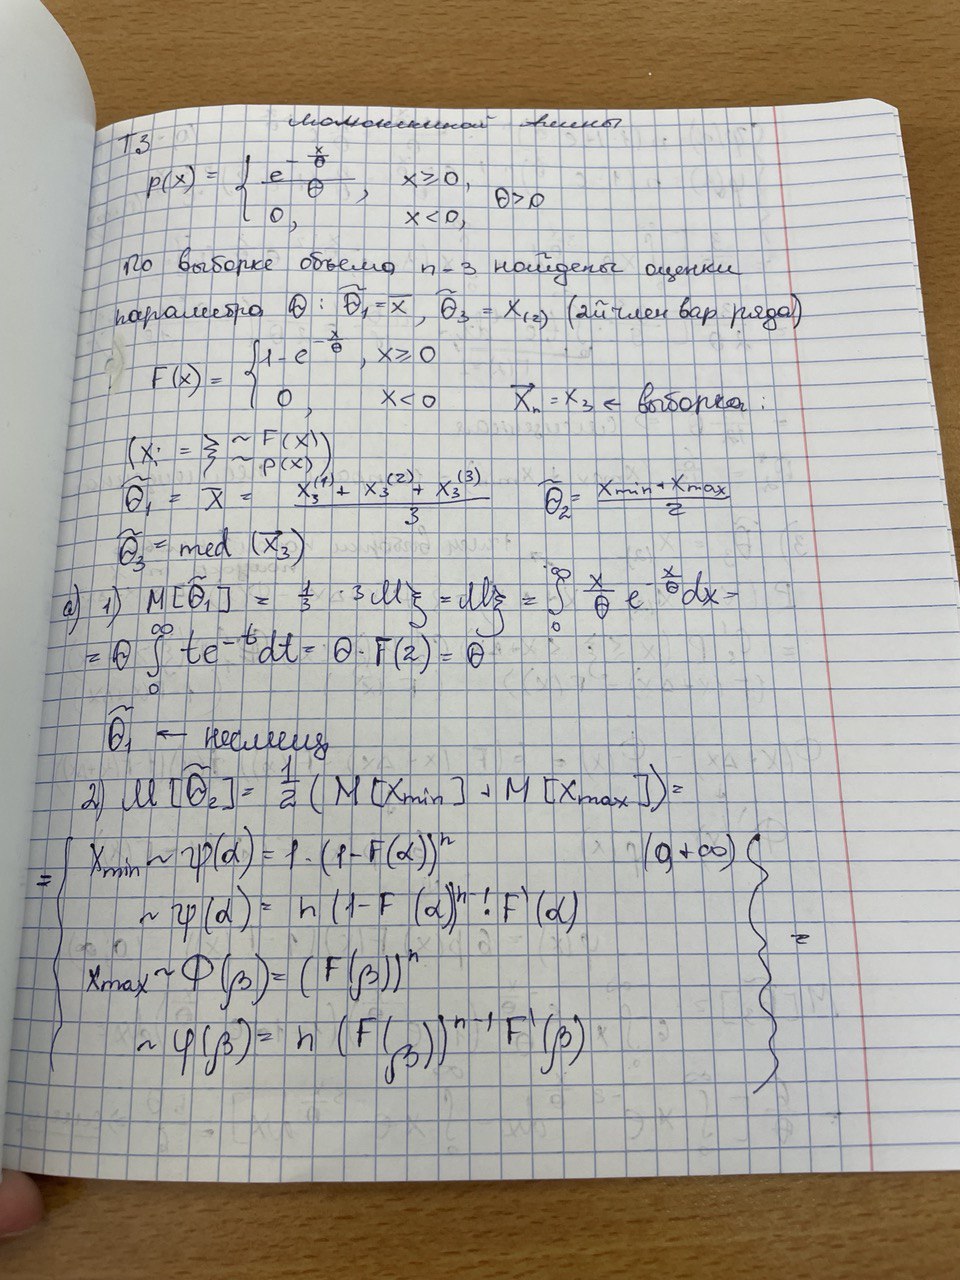 T3
p(x) = { e^{-x/θ}/θ, x ≥ 0, θ>0
0, x < 0,
По выборке объема n-3 найдены оценки
параметра θ : θ̃₁ = x̄, θ̃₃ = x₍₂₎ (2й член вар ряда)
F(x) = { 1 - e^{-x/θ}, x ≥ 0
0, x < 0 X⃗ₙ = x₃ ← выборка :
(xᵢ = ξ ~ F(x)
~ p(x))
θ̃₁ = x̄ = (x₃⁽¹⁾ + x₃⁽²⁾ + x₃⁽³⁾)/3 θ̃₂ = (xmin + xmax)/2
θ̃₃ = med (x⃗₃)
a) 1) M[θ̃₁] = 1/3 · 3Mξ = Mξ = ∫₀^∞ x/θ e^{-x/θ} dx =
= θ ∫₀^∞ te^{-t} dt = θ · Γ(2) = θ
θ̃₁ ← несмещ
2) M[θ̃₂] = 1/2 (M[xmin] + M[xmax]) =
= { xmin ~ ψ(α) = 1 - (1-F(α))ⁿ (0, +∞) }
~ ψ(α) = n (1-F(α))ⁿ⁻¹ · F'(α) =
xmax ~ Φ(β) = (F(β))ⁿ
~ φ(β) = n (F(β))ⁿ⁻¹ F'(β)